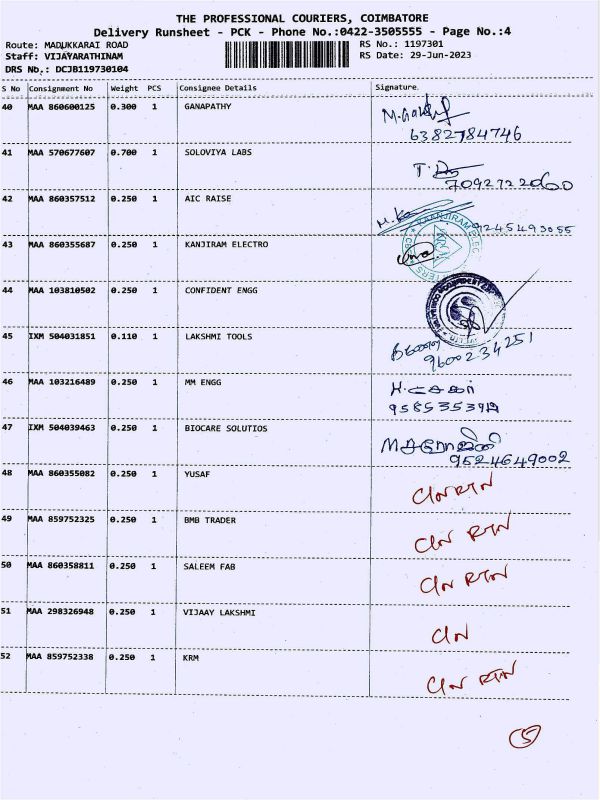 THE PROFESSIONAL COURIERS, COIMBATORE
Delivery Runsheet - PCK - Phone No.:0422-3505555 - Page No.:4
Route: MADUKKARAI ROAD
Staff: VIJAYARATHINAM
DRS No.: DCJB119730104
RS No.: 1197301
RS Date: 29-Jun-2023
S No Consignment No Weight PCS Consignee Details Signature
40 MAA 860600125 0.300 1 GANAPATHY
6382784746
41 MAA 570677607 0.700 1 SOLOVIYA LABS
42 MAA 860357512 0.250 1 AIC RAISE
9245493055
43 MAA 860355687 0.250 1 KANJIRAM ELECTRO
44 MAA 103810502 0.250 1 CONFIDENT ENGG
45 IXM 504031851 0.110 1 LAKSHMI TOOLS
9600234251
46 MAA 103216489 0.250 1 MM ENGG
47 IXM 504039463 0.250 1 BIOCARE SOLUTIOS
9524649002
48 MAA 860355082 0.250 1 YUSAF C/N RTN
49 MAA 859752325 0.250 1 BMB TRADER C/N RTN
50 MAA 860358811 0.250 1 SALEEM FAB C/N RTN
51 MAA 298326948 0.250 1 VIJAAY LAKSHMI C/N
52 MAA 859752338 0.250 1 KRM C/N RTN
5